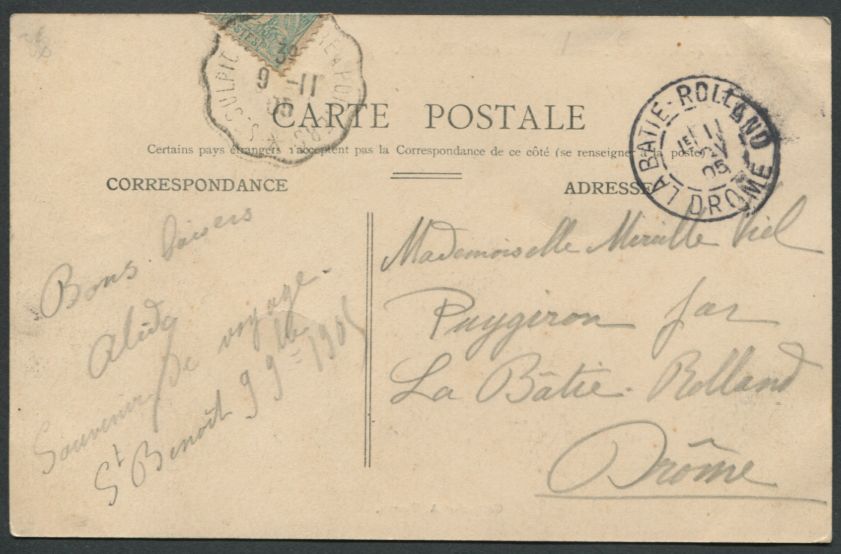 39
9 -11
05
CARTE POSTALE
Certains pays étrangers n'acceptent pas la Correspondance de ce côté (se renseigner à la poste)
CORRESPONDANCE
ADRESSE
LA BATIE-ROLLAND
11
05
DROME
Bons baisers
Alida
Souvenir de voyage.
St Benoît 9 9bre 1905
Mademoiselle Mireille Viel
Puygiron par
La Bâtie-Rolland
Drôme